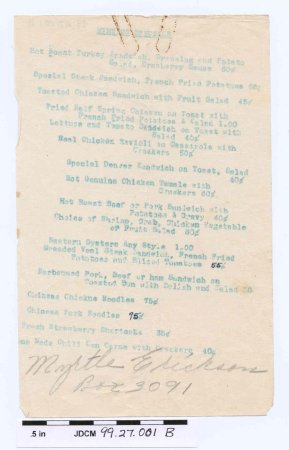 Hot Roast Turkey Sandwich, Dressing and Potato
Salad, Cranberry Sauce 60¢
Special Steak Sandwich, French Fried Potatoes
Toasted Chicken Sandwich with Fruit Salad 45¢
Fried Half Spring Chicken on Toast with
French Fried Potatoes & Salad 1.00
Lettuce and Tomato Sandwich on Toast with
Salad 40¢
Real Chicken Ravioli en Casserole with
Crackers 50¢
Special Denver Sandwich on Toast, Salad
40¢
Hot Genuine Chicken Tamale with
Crackers 60¢
Hot Roast Beef or Pork Sandwich with
Potatoes & Gravy 40¢
Choice of Shrimp, Crab, Chicken Vegetable
or Fruit Salad 50¢
Eastern Oysters Any Style 1.00
Breaded Veal Steak Sandwich, French Fried
Potatoes and Sliced Tomatoes 55¢
Barbecued Pork, Beef or Ham Sandwich on
Toasted Bun with Relish and Salad
Chinese Chicken Noodles 75¢
Chinese Pork Noodles 75¢
Fresh Strawberry Shortcake 35¢
Chili Con Carne with Crackers 40¢
Myrtle Erickson
Box 3091
.5 in JDCM 99.27.001 B